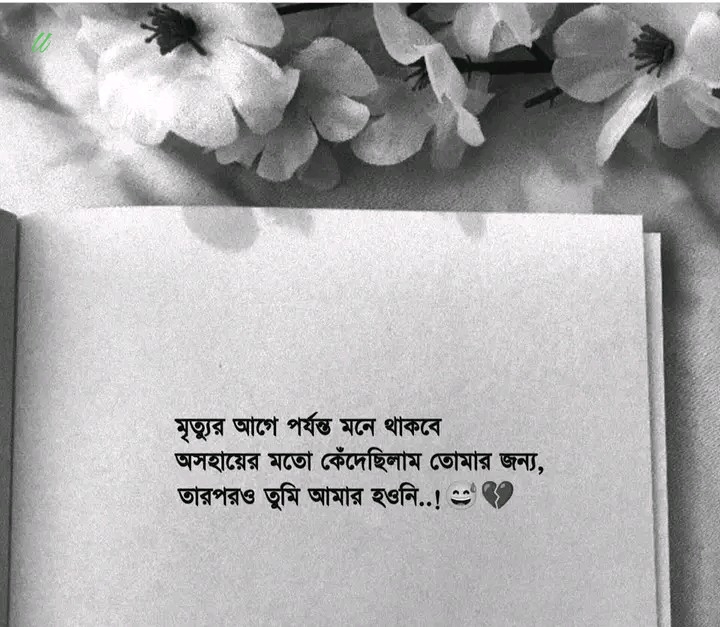 মৃত্যুর আগে পর্যন্ত মনে থাকবে
অসহায়ের মতো কেঁদেছিলাম তোমার জন্য,
তারপরও তুমি আমার হওনি..! 😅💔